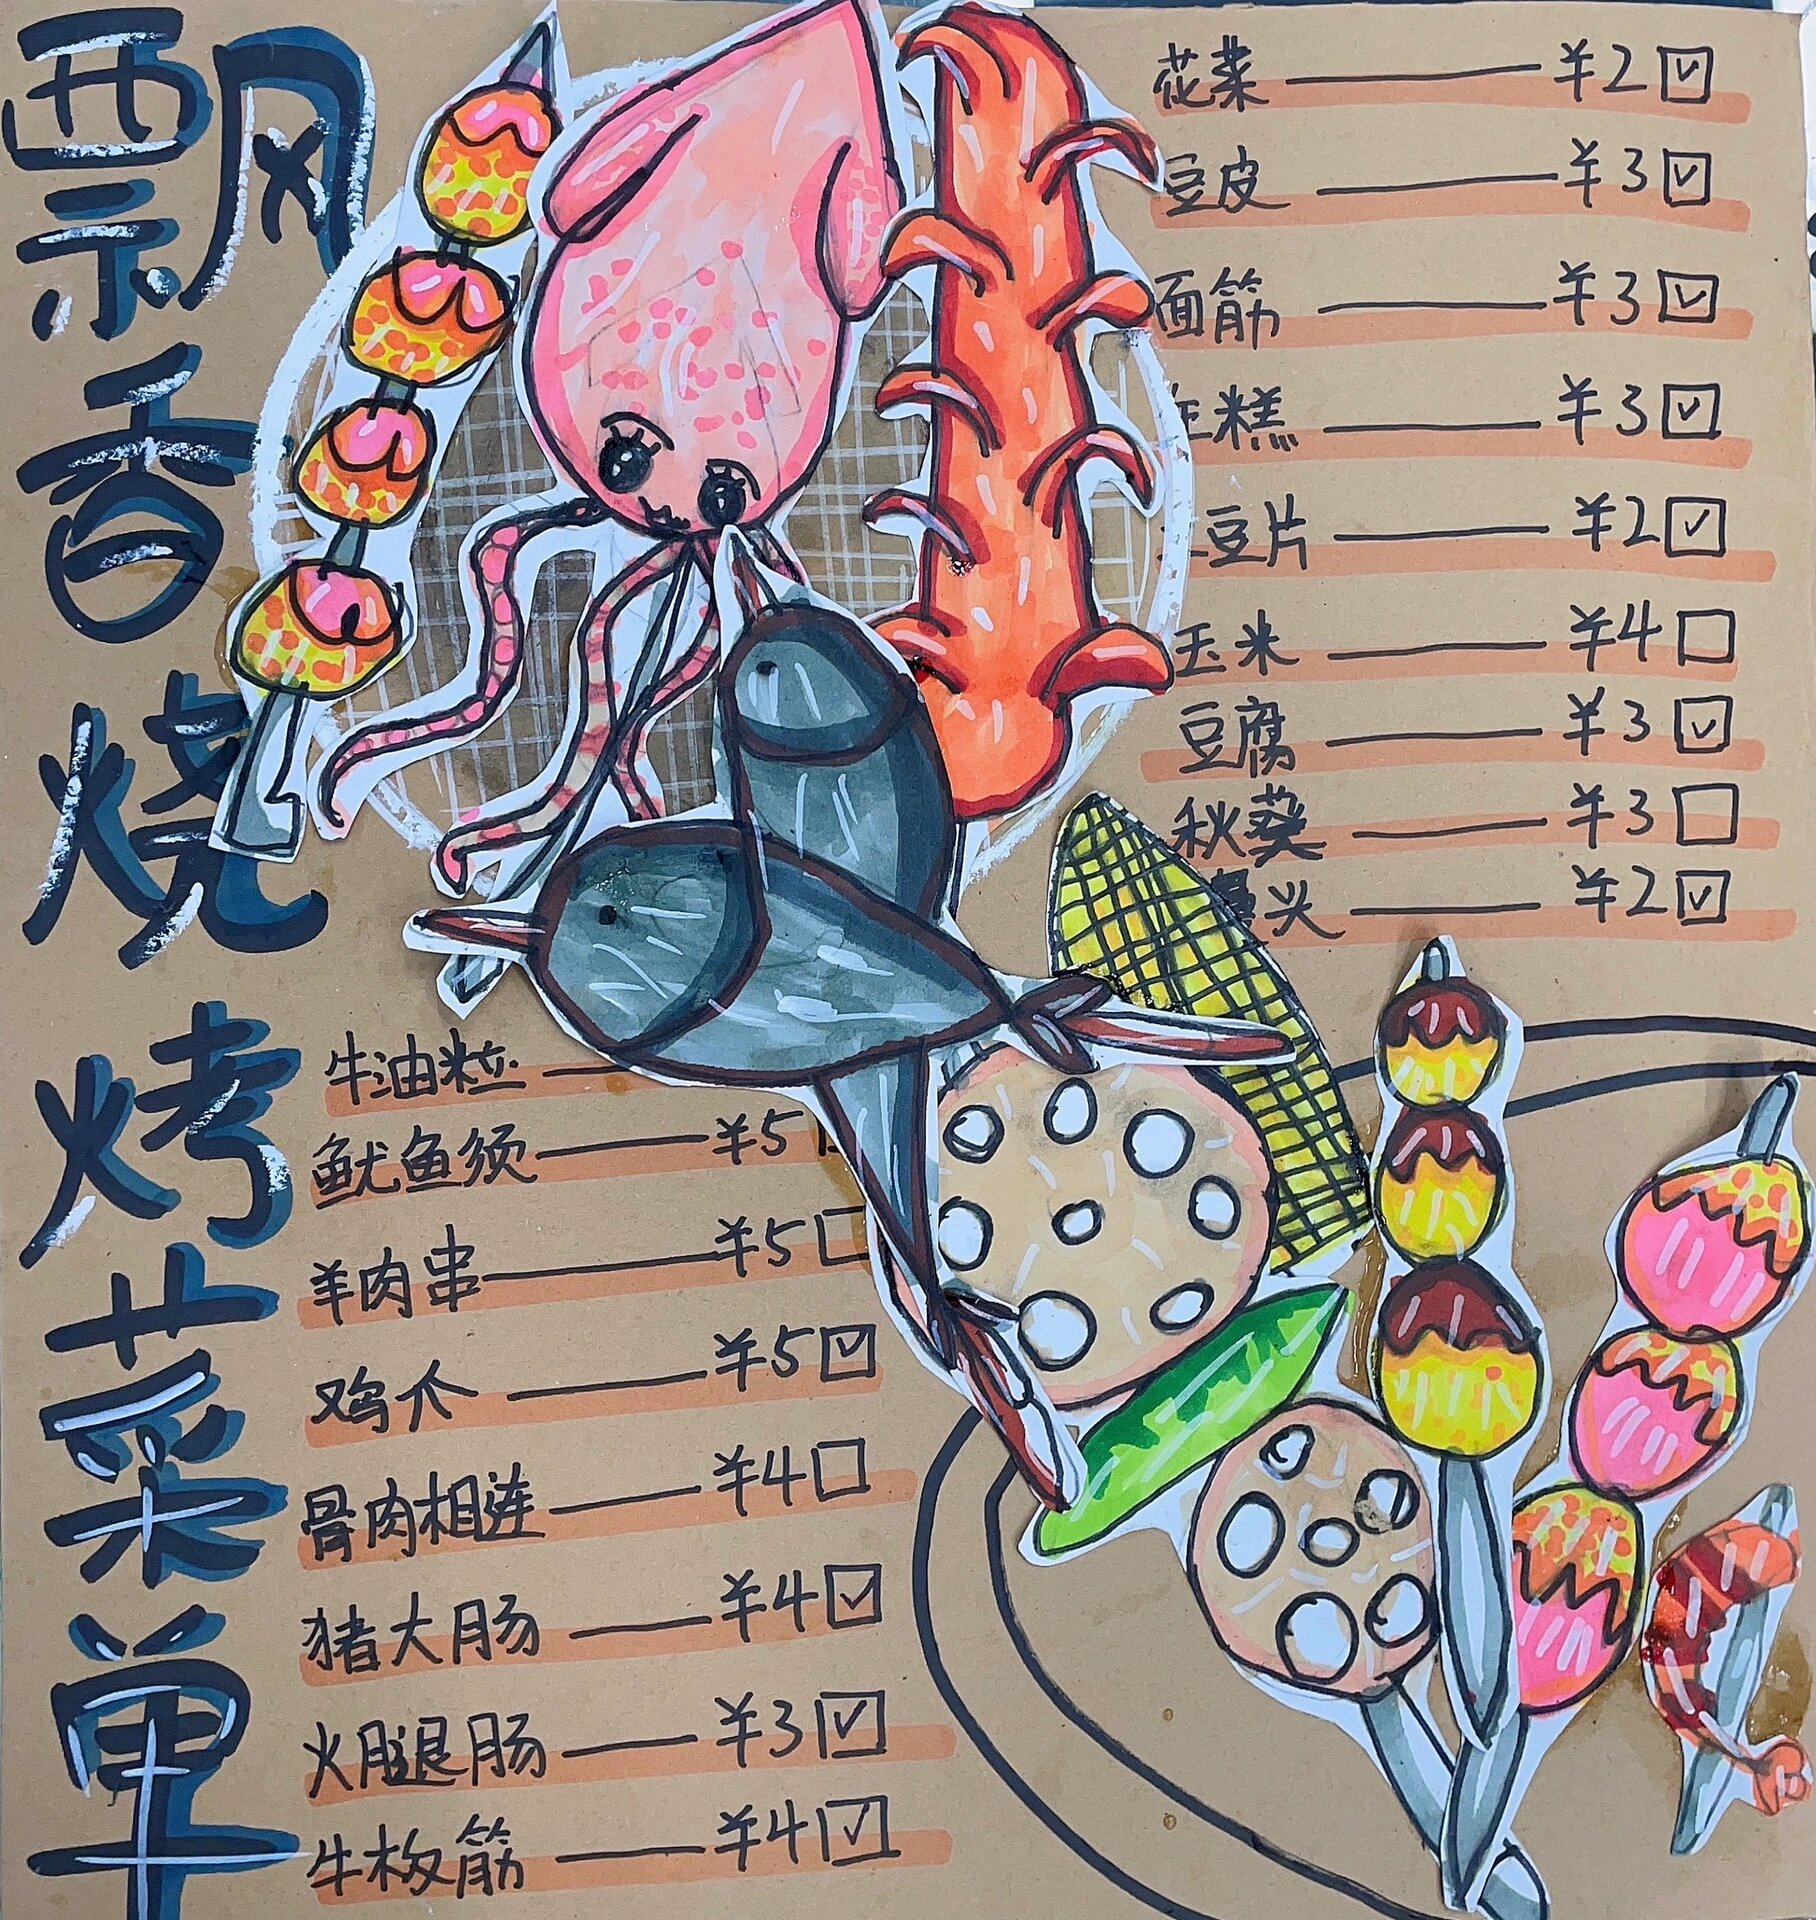 飘香烧烤菜单
花菜 ¥2
豆皮 ¥3
面筋 ¥3
糕 ¥3
豆片 ¥2
玉米 ¥4
豆腐 ¥3
秋葵 ¥3
头 ¥2
牛油粒
鱿鱼须 ¥5
羊肉串 ¥5
鸡爪 ¥5
骨肉相连 ¥4
猪大肠 ¥4
火腿肠 ¥3
牛板筋 ¥4